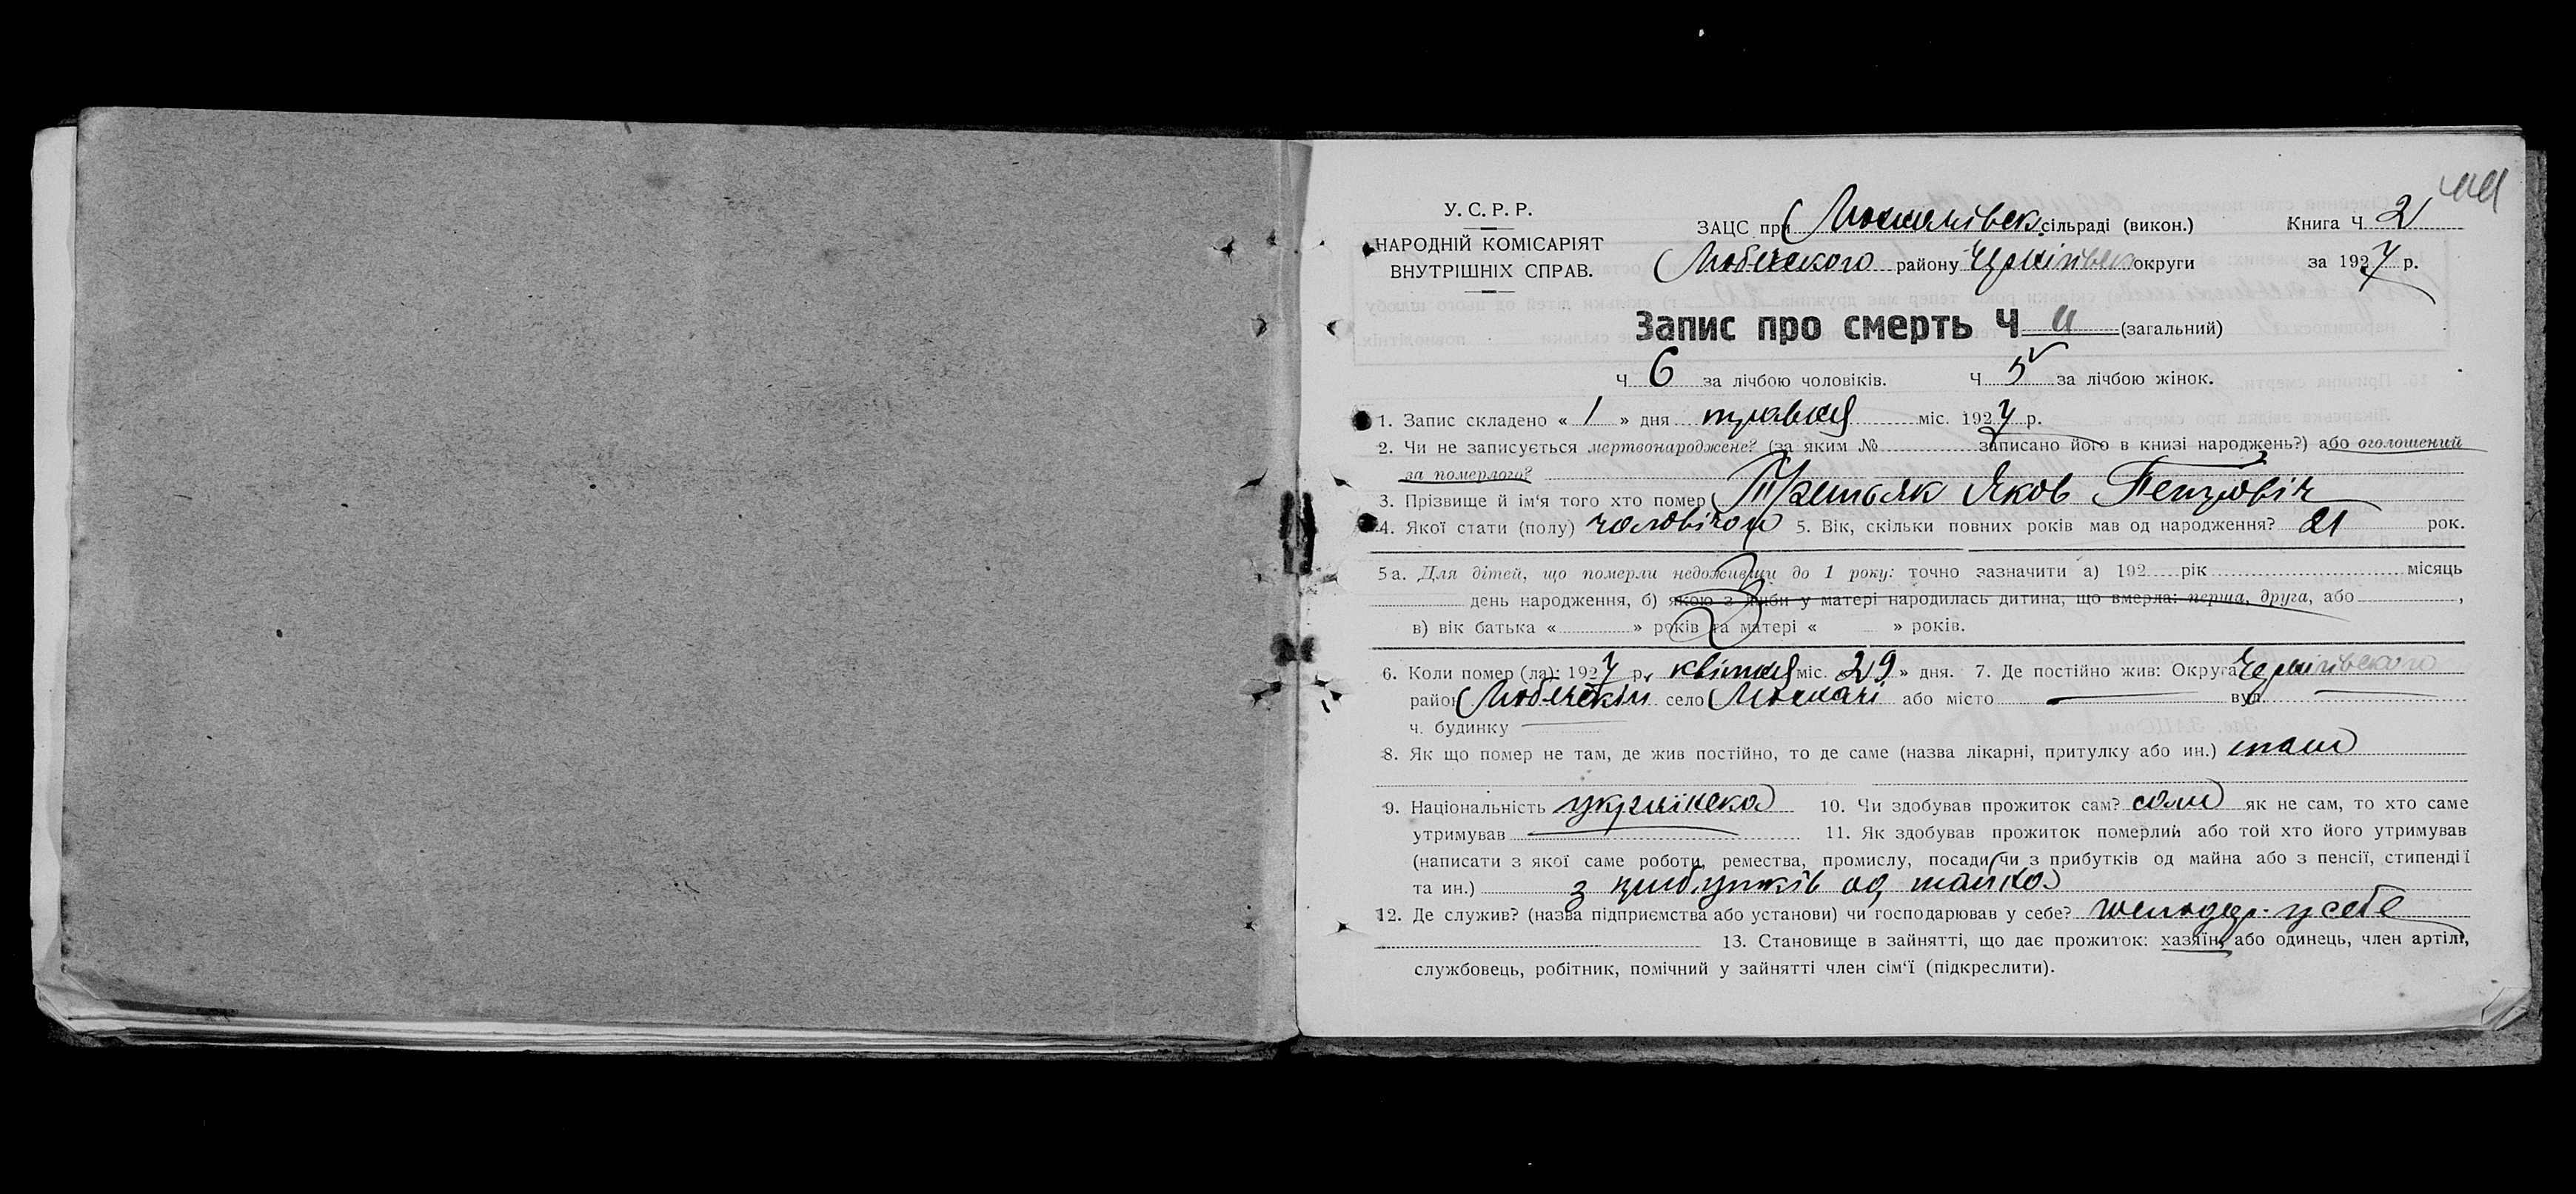 У. С. Р. Р.
НАРОДНІЙ КОМІСАРІЯТ
ВНУТРІШНІХ СПРАВ.
ЗАЦС при сільраді (викон.) Книга Ч 2
Любечского району Чернігівск округи за 1927 р.
Запис про смерть Ч 11 (загальний)
Ч 6 за лічбою чоловіків. Ч 5 за лічбою жінок.
1. Запис складено « 1 » дня травня міс. 1927 р.
2. Чи не записується мертвонароджене? (за яким № записано його в книзі народжень?) або оголошений
за померлого?
3. Прізвище й ім'я того хто помер Третьяк Яков Петровіч
4. Якої стати (полу) чоловічої 5. Вік, скільки повних років мав од народження? 21 рок.
5а. Для дітей, що померли недоживши до 1 року: точно зазначити а) 192 рік місяць
день народження, б) якою з лічби у матері народилась дитина, що вмерла: перша, друга, або ,
в) вік батька « » років та матері « » років.
6. Коли помер (ла): 1927 р. квітня міс. 29 » дня. 7. Де постійно жив: Округа Чернігівского
район Любечскій село або місто вул.
ч. будинку
8. Як що помер не там, де жив постійно, то де саме (назва лікарні, притулку або ин.) там
9. Національність 10. Чи здобував прожиток сам? сам як не сам, то хто саме
утримував 11. Як здобував прожиток померлий або той хто його утримував
(написати з якої саме роботи, ремества, промислу, посади чи з прибутків од майна або з пенсії, стипендії
та ин.) з прибутків од майна
12. Де служив? (назва підприємства або установи) чи господарював у себе? у себе
13. Становище в зайнятті, що дає прожиток: хазяїн, або одинець, член артілі,
службовець, робітник, помічний у зайнятті член сім'ї (підкреслити).